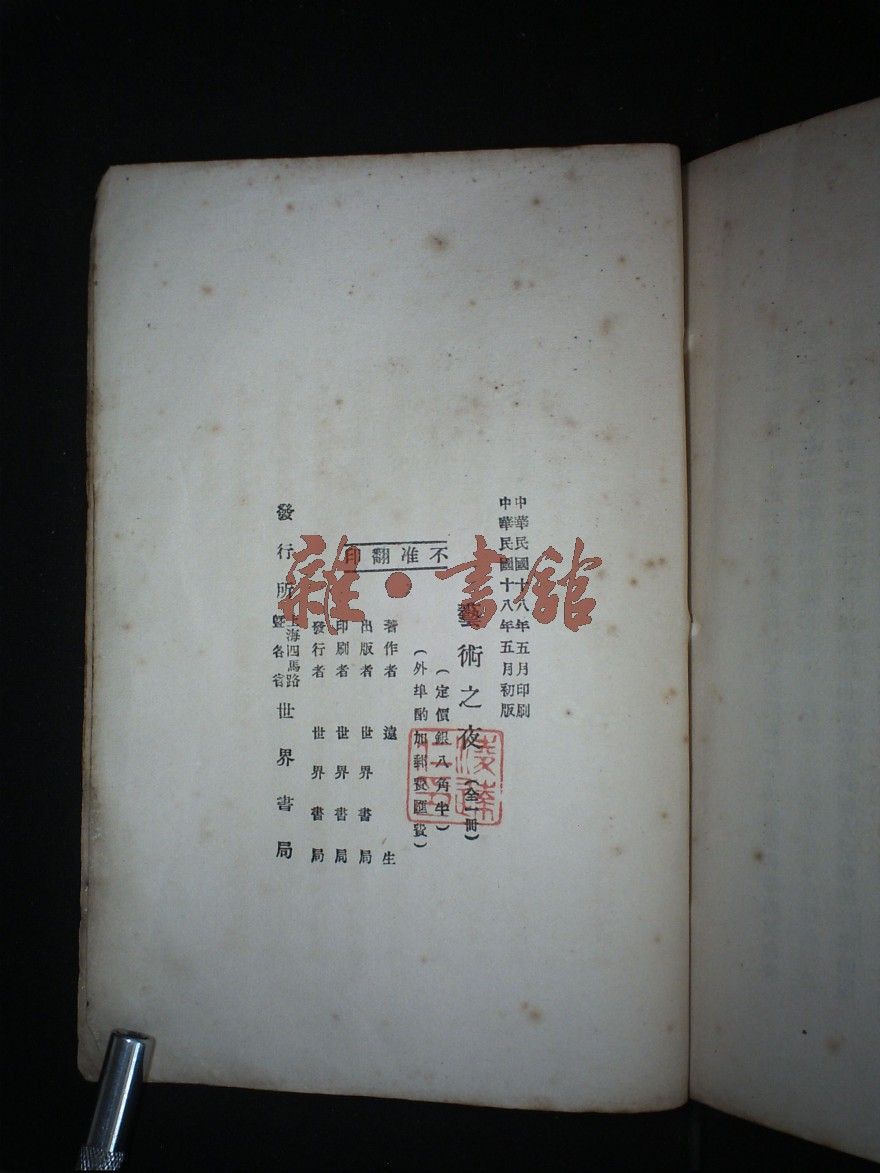 中華民國十八年五月印刷
中華民國十八年五月初版
藝術之夜(全一冊)
(定價銀八角半)
(外埠酌加郵費匯費)
不准翻印
著作者 遠生
出版者 世界書局
印刷者 世界書局
發行者 世界書局
發行所 上海四馬路暨各省 世界書局
雜·書館